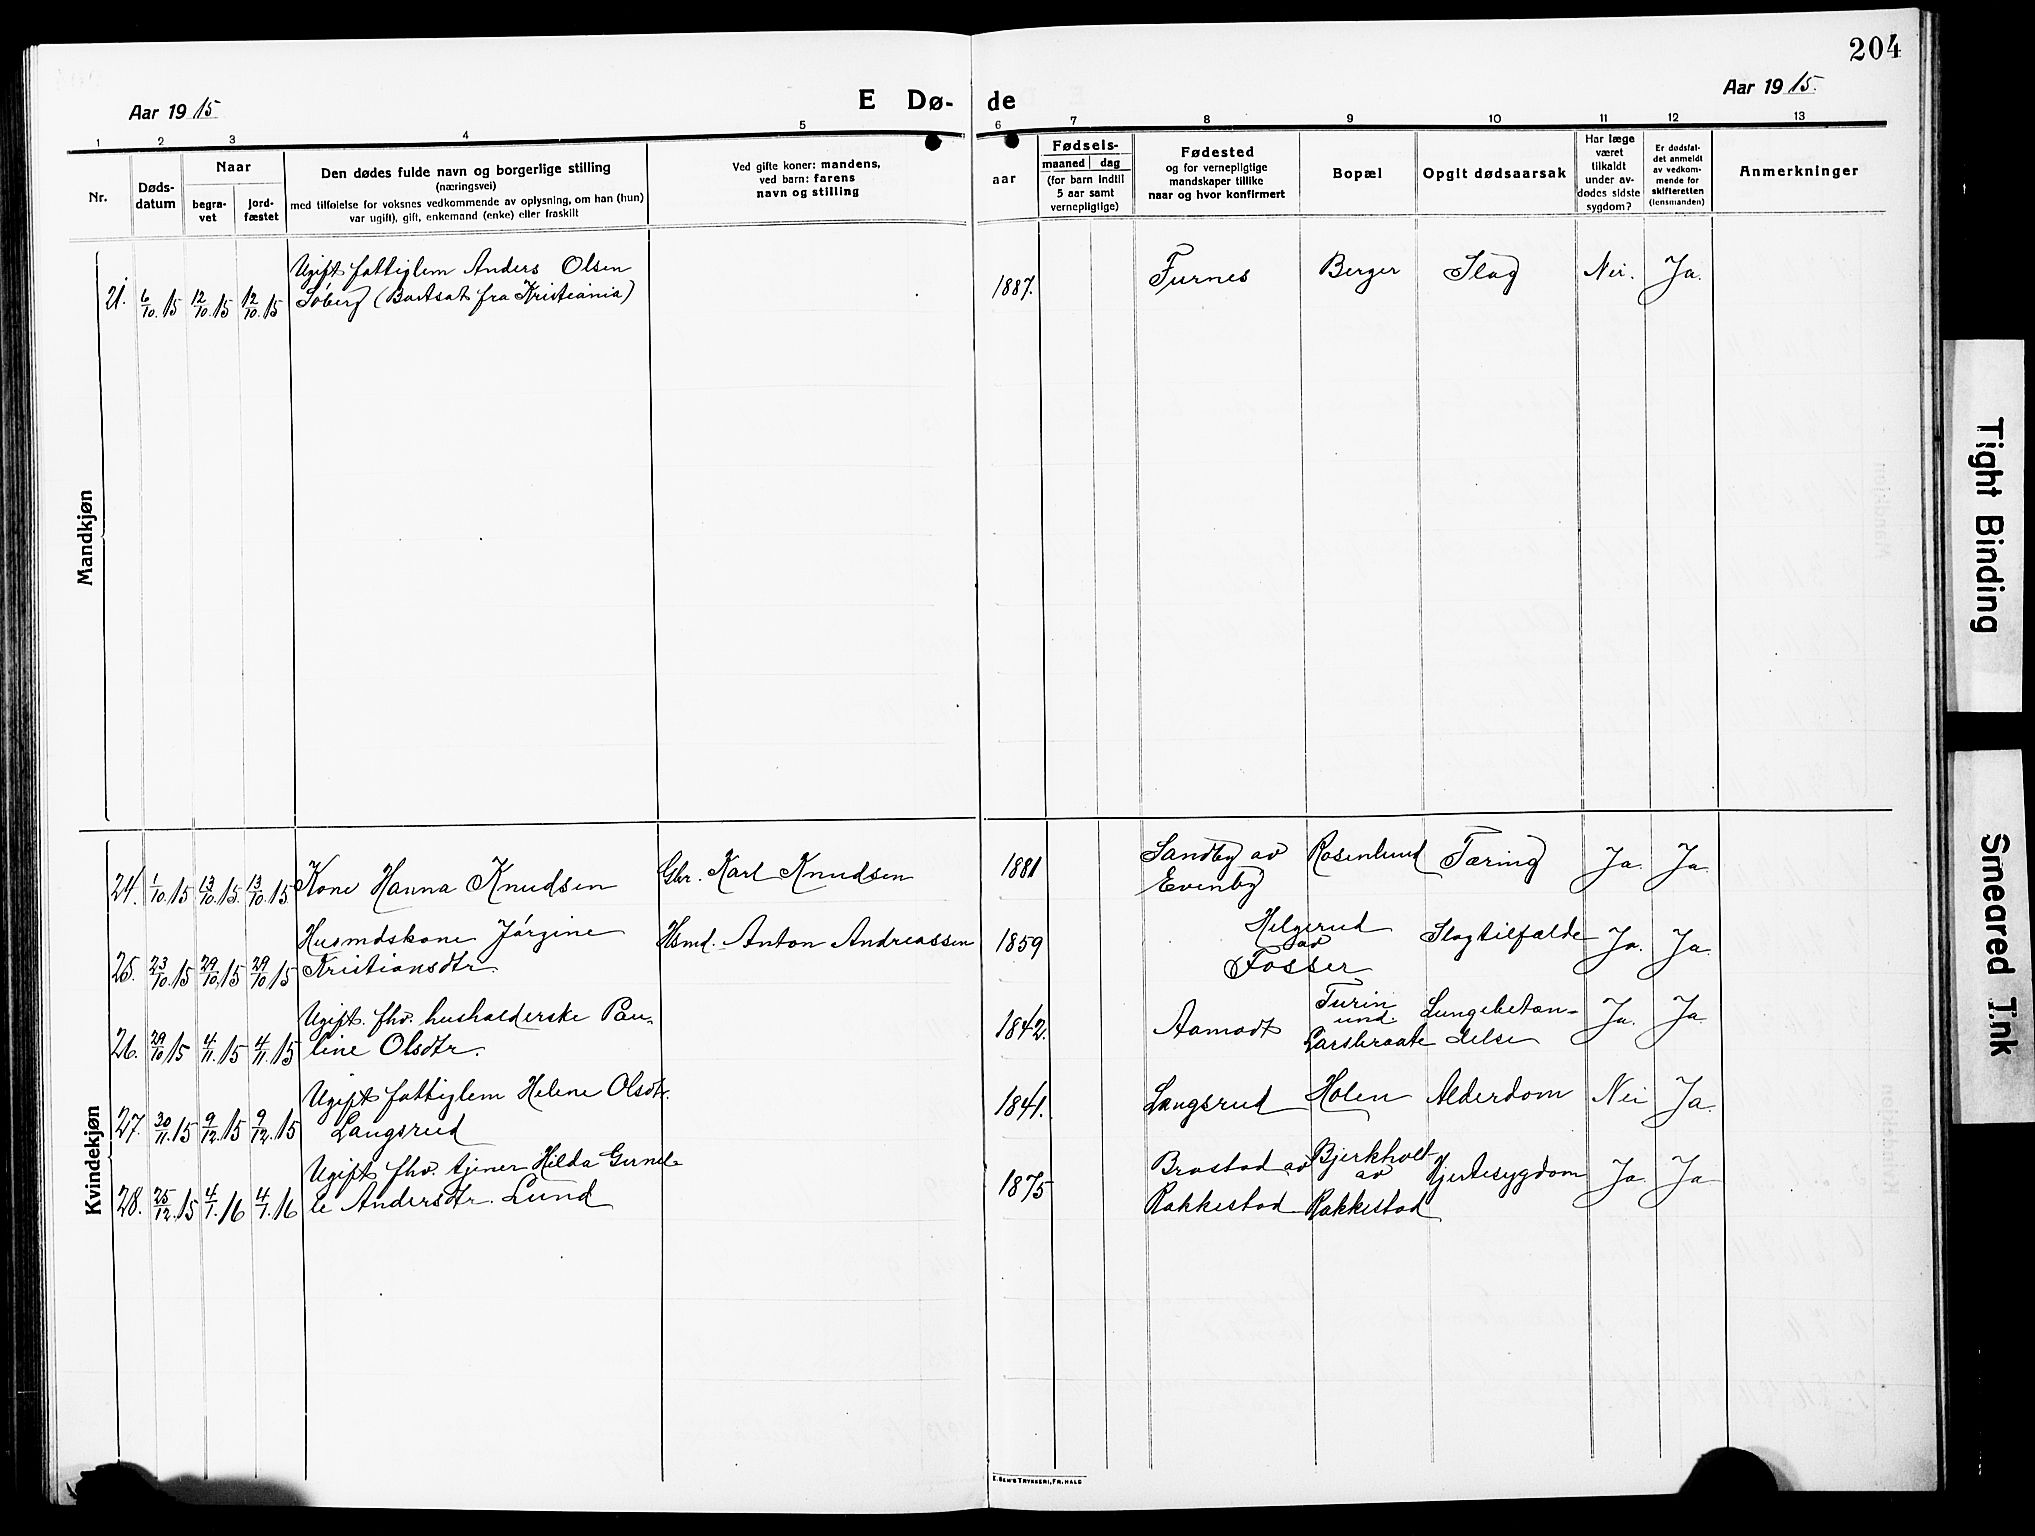 204
Aar 1915
E Dø- de
Aar 1915.
1 2 3 4 5 6 7 8 9 10 11 12 13
Nr.
Døds-
datum
Naar
begra-
vet
jord-
fæstet
Den dødes fulde navn og borgerlige stilling
(næringsvei)
med tilføielse for voksnes vedkommende av oplysning, om han (hun)
var ugift, gift, enkemand (enke) eller fraskilt
Ved gifte koner: mandens,
ved barn: farens
navn og stilling
aar
Fødsels-
maaned dag
(for barn indtil
5 aar samt
vernepligtige)
Fødested
og for vernepligtige
mandskaper tillike
naar og hvor konfirmert
Bopæl
Opgit dødsaarsak
Har læge
været
tilkaldt
under av-
dødes sidste
sygdom?
Er dødsfal-
det anmeldt
av vedkom-
mende for
skifteretten
(lensmanden)
Anmerkninger
Mandkjøn
Ugift fattiglem Anders Olsen
21. 6/10.15 12/10.15 12/10.15 Søberg (Bortsat fra Kristiania) 1887. Furnes Berger Slag Nei. Ja.
Kvindekjøn
24. 1/10.15 13/10.15. 13/10.15 Kone Hanna Knudsen Gbr. Karl Knudsen 1881 Sandby av Rosenlund Tæring Ja. Ja.
Evenby
Husmdskone Jørgine Hsmd. Anton Andreassen 1859 Helgerud Slagtilfælde Ja. Ja.
av
25. 23/10.15 29/10.15 29/10.15 Kristiansdtr. Fosser
Ugift. fhv. husholderske Pau- 1842. Aamodt Turin Lungebetæn- Ja. Ja.
und.
26. 29/10.15 4/11.15 4/11.15 line Olsdtr. Larsbraate delse
Ugift fattiglem Helene Olsdtr. 1841. Langsrud Holen Alderdom Nei Ja.
27. 30/11.15 9/12.15 9/12.15 Langsrud
Ugift fhv. tjener Hilda Gunel- 1875 av Bjerkholt Hjertesygdom Ja. Ja
av
28. 25/12.15 4/1.16 4/1.16 le Andersdtr. Lund Rakkestad Rakkestad
E. SEM'S TRYKKERI, FR. HALD
Tight Binding
Smeared Ink